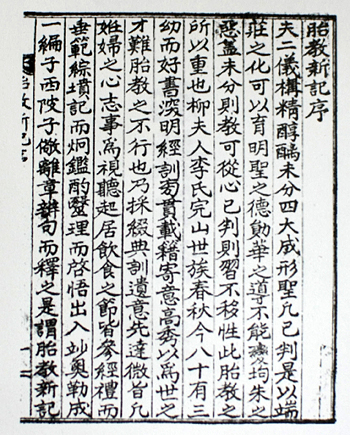 胎教新記序
夫二儀構精醇醨未分四大成形聖凡已判是以端
莊之化可以育明聖之德勛華之導不能變均朱之
惡蓋未分則教可從心已判則習不移性此胎教之
所以重也柳夫人李氏完山世族春秋今八十有三
幼而好書深明經訓旁貫載籍寄意高秀以爲世之
才難胎教之不行也乃採綴典訓遺意先達微旨凡
姙婦之心志事爲視聽起居飲食之節皆參經禮而
垂範綜墳記而炯鑑酌毉理而啓悟出入竗奧勒成
一編子西陂子儆離章辨句而釋之是謂胎教新記